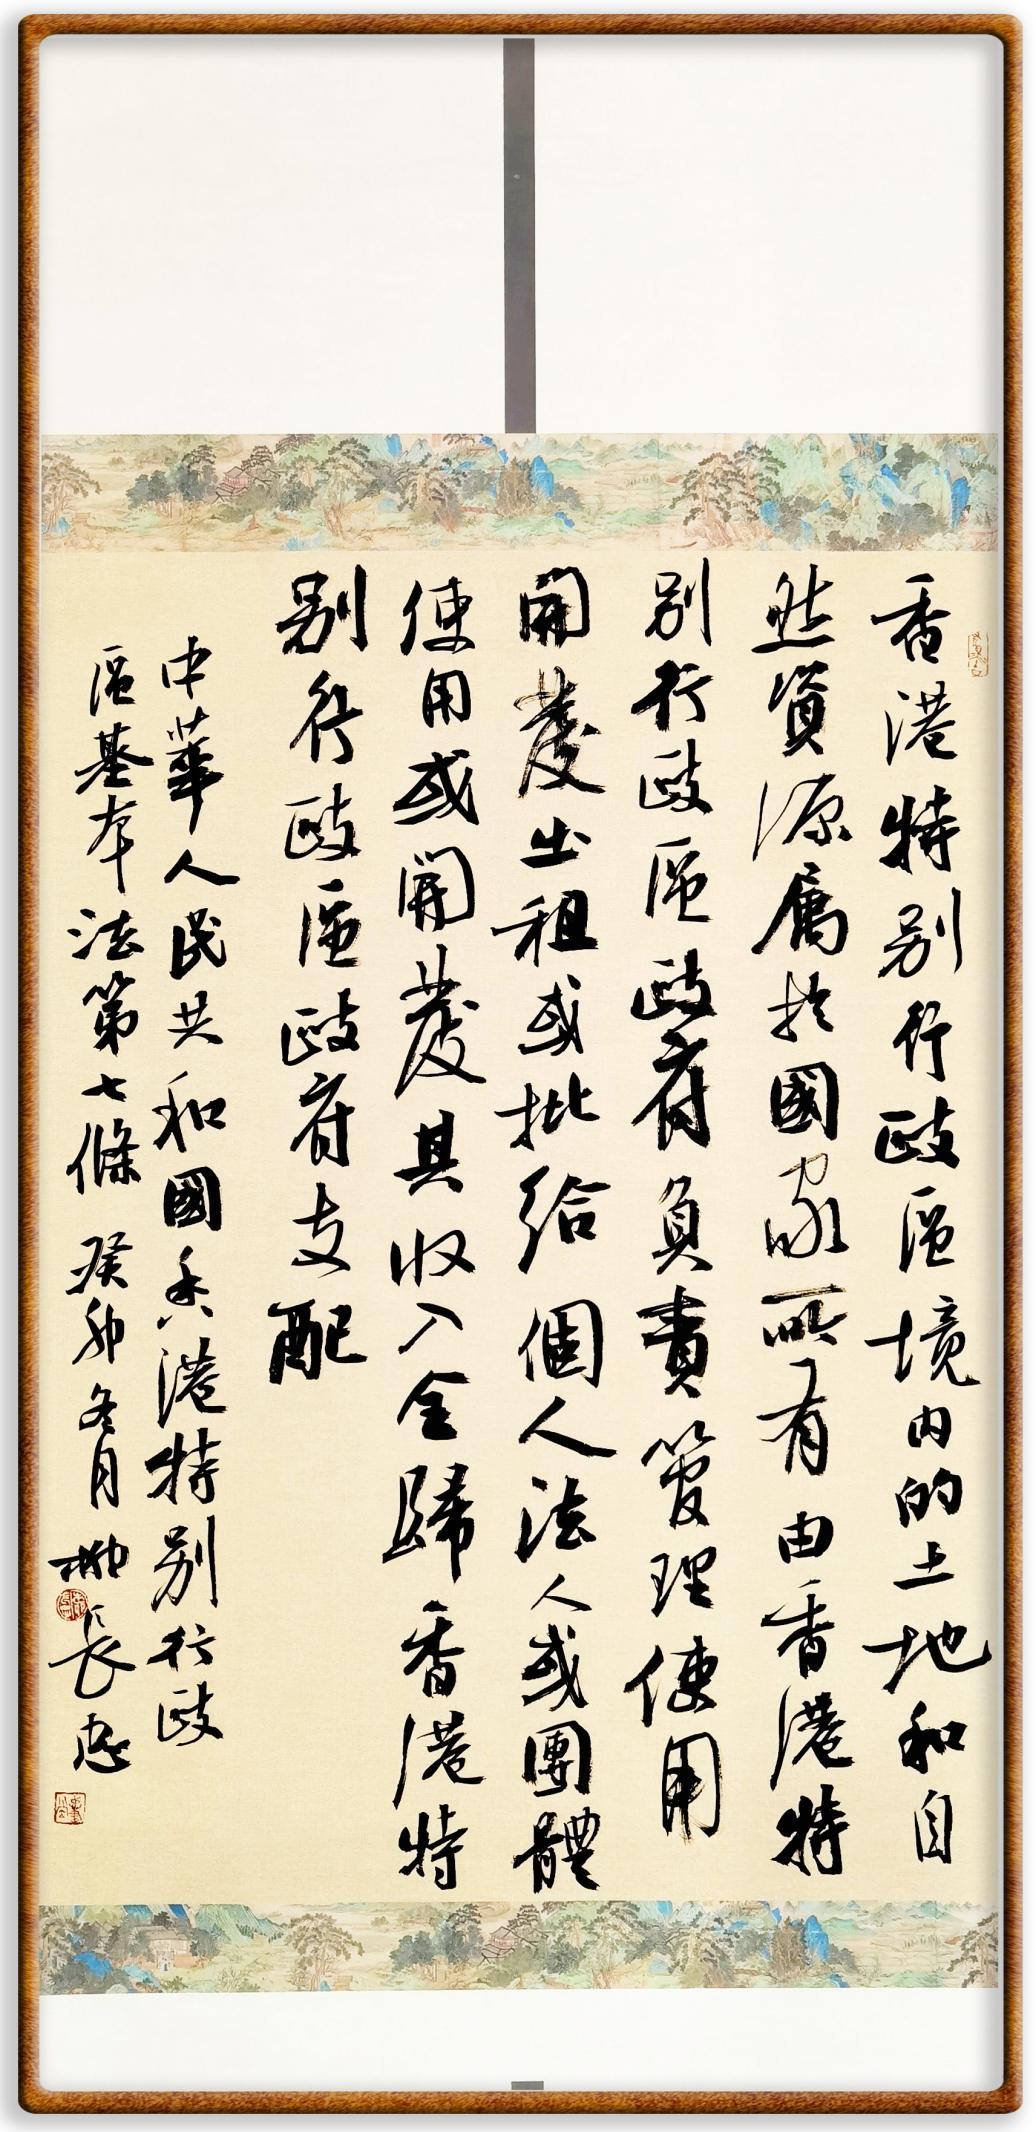 香港特別行政區境內的土地和自
然資源屬於國家所有由香港特
別行政區政府負責管理使用
開發出租或批給個人法人或團體
使用或開發其收入全歸香港特
別行政區政府支配
中華人民共和國香港特別行政
區基本法第七條 癸卯冬月 柳長忠